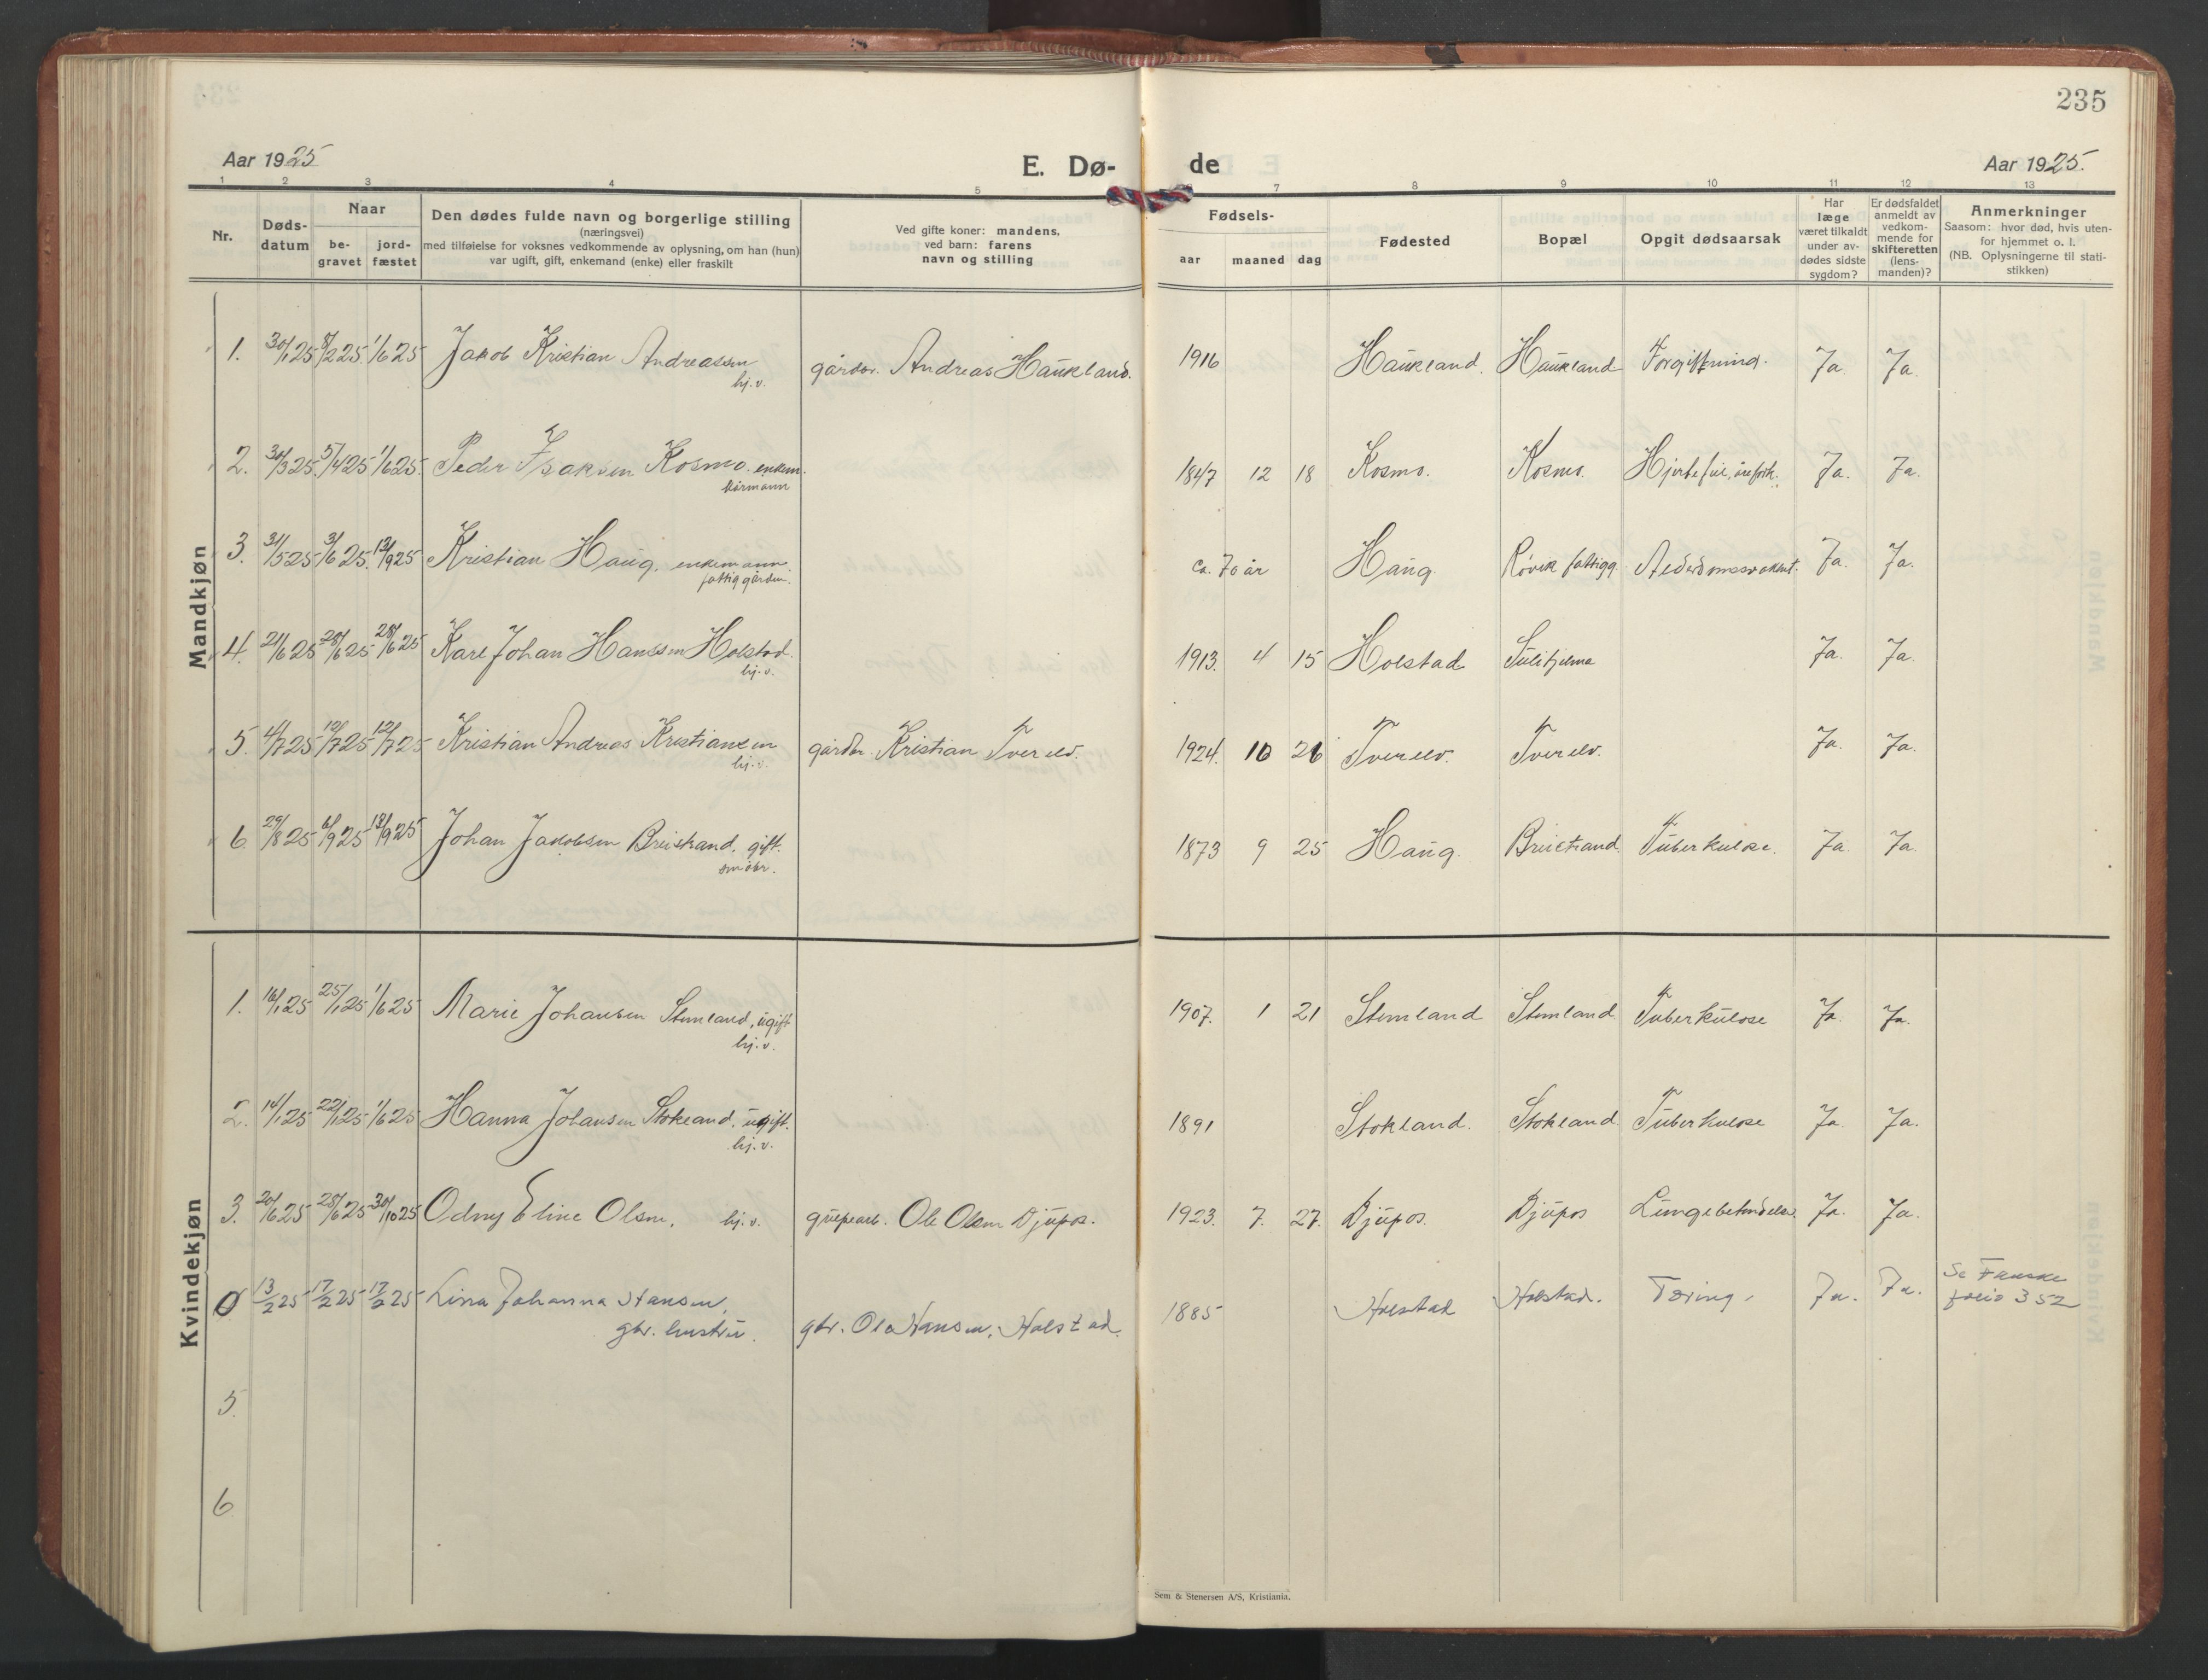 235
Aar 1925
E. Dø-
de
Aar 1925.
1 2 3 4 5 7 8 9 10 11 12 13
Nr.
Døds-
datum
Naar
be-
gravet
jord-
fæstet
Den dødes fulde navn og borgerlige stilling
(næringsvei)
med tilføielse for voksnes vedkommende av oplysning, om han (hun)
var ugift, gift, enkemand (enke) eller fraskilt
Ved gifte koner: mandens,
ved barn: farens
navn og stilling
Fødsels-
aar maaned dag
Fødested
Bopæl
Opgit dødsaarsak
Har
læge
været tilkaldt
under av-
dødes sidste
sygdom?
Er dødsfaldet
anmeldt av
vedkom-
mende for
skifteretten
(lens-
manden)?
Anmerkninger
Saasom: hvor død, hvis uten-
for hjemmet o. l.
(NB. Oplysningerne til stati-
stikken)
Mandkjøn
1. 30/1 25 8/2 25 1/6 25 Jakob Kristian Andreassen gårdbr. Andreas Haukland. 1916 Haukland. Haukland Forgiftning. Ja. Ja.
hj. v.
2. 30/3 25. 5/4 25 1/6 25. Peder Isaksen Kosmo. enkem. 1847 12 18 Kosmo. Kosmo. Ja. Ja.
kårmann
3. 31/5 25 3/6 25. 13/9 25 Kristian Haug. enkemann. ca. 70 år Haug. Røvik fattigg. Ja. Ja.
fattiggården.
4. 21/6 25 28/6 25 28/6 25 Karl Johan Hanssen Holstad. 1913. 4 15 Holstad Sulitjelma Ja. Ja.
hj. v.
5. 4/7 25 12/7 25 12/7 25 Kristian Andreas Kristiansen gårdbr. Kristian Tverelv. 1924. 10 26 Tverelv. Tverelv. Ja. Ja.
hj. v.
6. 29/8 25 6/9 25 13/9 25 Johan Jakobsen Breistrand. gift. 1873 9 25 Haug. Breistrand. Tuberkulose. Ja. Ja.
småbr.
Kvindekjøn
1. 16/1 25 25/1 25 1/6 25 Marie Johansen Stemland, ugift 1907. 1 21 Stemland Stemland Tuberkulose Ja. Ja.
hj. v.
2. 14/1 25 22/1 25 1/6 25 Hanna Johansen Stokland, ugift. 1891 Stokland. Stokland. Tuberkulose Ja. Ja.
hj. v.
3. 20/6 25 28/6 25 30/10 25 Odny Eline Olsen. hj. v. grubearb. Ole Olsen Djupos. 1923. 7. 27. Djupos. Djupos Lungebetendelse. Ja. Ja.
0 13/2 25 17/2 25 17/2 25 Lina Johanna Hansen, gbr. Ola Hansen, Holstad. 1885 Holstad Holstad. Tæring. Ja. Ja. Se Fauske
gbr. hustru. folio 352
5.
6
Sem & Stenersen A/S, Kristiania.